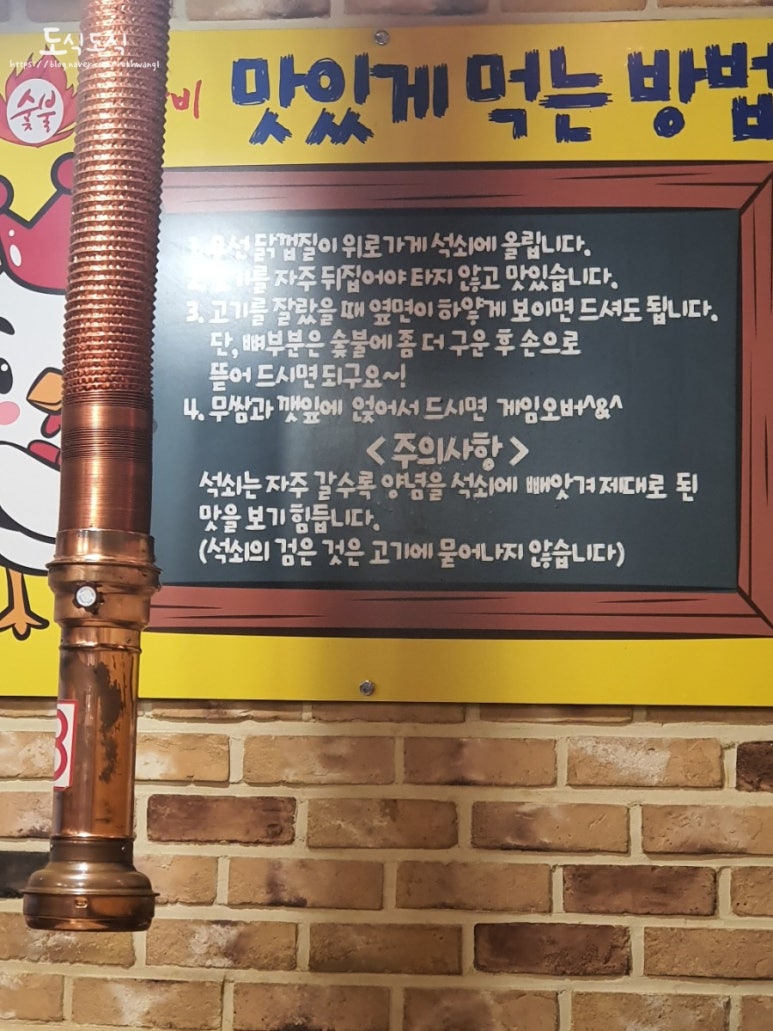 도식도식
숯불 비 맛있게 먹는 방법
1. 우선 닭껍질이 위로가게 석쇠에 올립니다.
2. 고기를 자주 뒤집어야 타지 않고 맛있습니다.
3. 고기를 잘랐을 때 옆면이 하얗게 보이면 드셔도 됩니다.
단, 뼈부분은 숯불에 좀 더 구운 후 손으로
뜯어 드시면 되구요~!
4. 무쌈과 깻잎에 얹어서 드시면 게임오버^&^
<주의사항>
석쇠는 자주 갈수록 양념을 석쇠에 빼앗겨 제대로 된
맛을 보기 힘듭니다.
(석쇠의 검은 것은 고기에 묻어나지 않습니다)
3